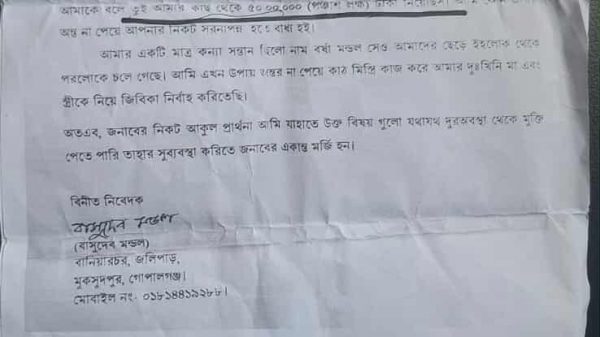 আমাকে বলে তুই আমার কাছ থেকে ৫০,০০,০০০ (পঞ্চাশ লক্ষ) টাকা
অন্ত না পেয়ে আপনার নিকট সরনাপন্ন হতে বাধ্য হই।
আমার একটি মাত্র কন্যা সন্তান ছিলো নাম বর্ষা মন্ডল সেও আমাদের ছেড়ে ইহলোক থেকে
পরলোকে চলে গেছে। আমি এখন উপায় অন্তর না পেয়ে কাঠ মিস্ত্রি কাজ করে আমার দুঃখিনি মা এবং
স্ত্রীকে নিয়ে জিবিকা নির্বাহ করিতেছি।
অতএব, জনাবের নিকট আকুল প্রার্থনা আমি যাহাতে উক্ত বিষয় গুলো যথাযথ দুরঅবস্থা থেকে মুক্তি
পেতে পারি তাহার সুব্যবস্থা করিতে জনাবের একান্ত মর্জি হন।
বিনীত নিবেদক
বাসুদেব মন্ডল
(বাসুদেব মন্ডল)
বানিয়ারচর, জলিপাড়,
মুকসুদপুর, গোপালগঞ্জ।
মোবাইল নং- ০১৮১৪৪১৯২৮৮।